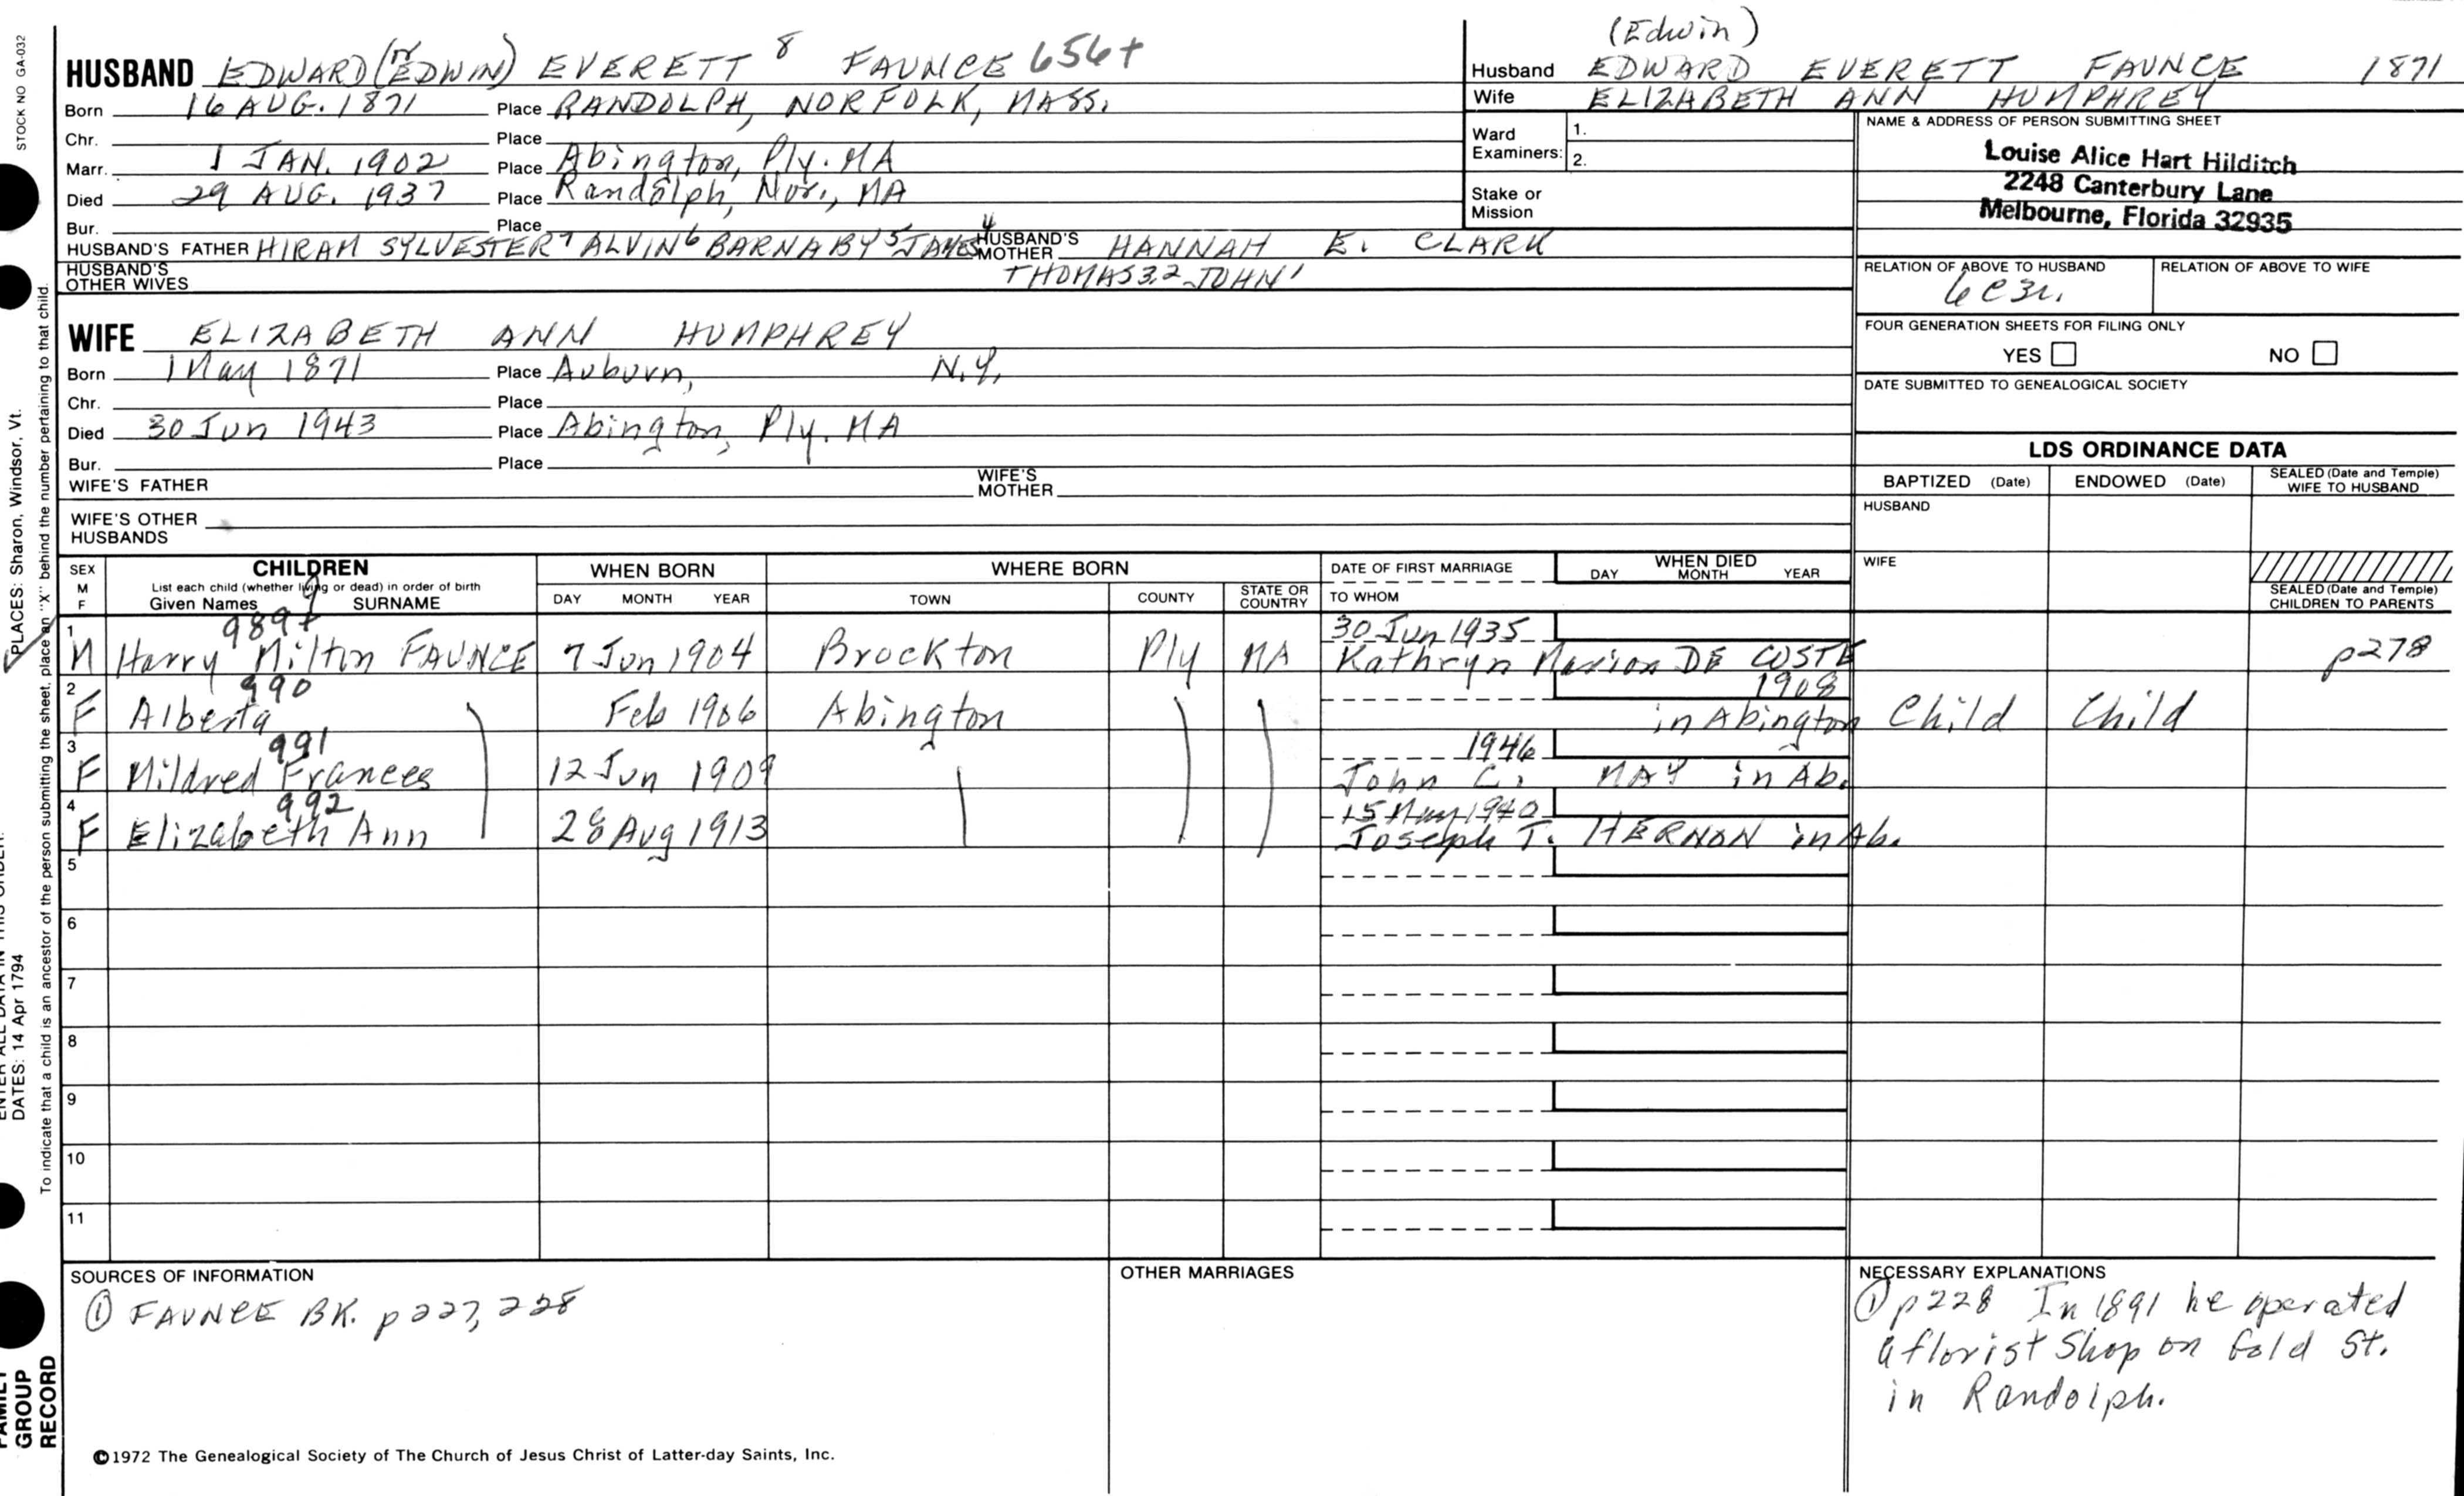 STOCK NO GA-032
HUSBAND EDWARD (or EDWIN) EVERETT 8 FAUNCE 656+
Born 16 AUG. 1871 Place RANDOLPH, NORFOLK, MASS.
Chr. Place
Marr. 1 JAN. 1902 Place Abington, Ply. MA
Died 29 AUG. 1937 Place Randolph, Nor., MA
Bur. Place
HUSBAND'S FATHER HIRAM SYLVESTER 7 ALVIN 6 BARNABY 5 JAMES 4 HUSBAND'S MOTHER HANNAH E. CLARK
HUSBAND'S OTHER WIVES THOMAS 3,2 JOHN 1
(Edwin)
Husband EDWARD EVERETT FAUNCE 1871
Wife ELIZABETH ANN HUMPHREY
Ward Examiners: 1.
2.
Stake or Mission
NAME & ADDRESS OF PERSON SUBMITTING SHEET
Louise Alice Hart Hilditch
2248 Canterbury Lane
Melbourne, Florida 32935
RELATION OF ABOVE TO HUSBAND RELATION OF ABOVE TO WIFE
6c3r.
FOUR GENERATION SHEETS FOR FILING ONLY
YES NO
DATE SUBMITTED TO GENEALOGICAL SOCIETY
WIFE ELIZABETH ANN HUMPHREY
Born 1 May 1871 Place Auburn, N.Y.
Chr. Place
Died 30 Jun 1943 Place Abington, Ply. MA
Bur. Place
WIFE'S FATHER WIFE'S MOTHER
WIFE'S OTHER HUSBANDS
LDS ORDINANCE DATA
BAPTIZED (Date) ENDOWED (Date) SEALED (Date and Temple) WIFE TO HUSBAND
HUSBAND
WIFE
SEALED (Date and Temple) CHILDREN TO PARENTS
SEX M F CHILDREN WHEN BORN WHERE BORN DATE OF FIRST MARRIAGE WHEN DIED
List each child (whether living or dead) in order of birth
Given Names SURNAME DAY MONTH YEAR TOWN COUNTY STATE OR COUNTRY TO WHOM DAY MONTH YEAR
9
1 989+ 30 Jun 1935
M Harry Milton FAUNCE 7 Jun 1904 Brockton Ply MA Kathryn Marion DE COSTE p278
2 990 1908
F Alberta Feb 1906 Abington in Abington Child Child
3 991 1946
F Mildred Frances 12 Jun 1909 John C. MAY in Ab.
4 992 15 May 1940
F Elizabeth Ann 28 Aug 1913 Joseph T. HERNON in Ab.
5
6
7
8
9
10
11
SOURCES OF INFORMATION
① FAUNCE BK. p227, 228
OTHER MARRIAGES
NECESSARY EXPLANATIONS
① p228 In 1891 he operated
a florist shop on Gold St.
in Randolph.
©1972 The Genealogical Society of The Church of Jesus Christ of Latter-day Saints, Inc.
PLACES: Sharon, Windsor, Vt.
DATES: 14 Apr 1794
To indicate that a child is an ancestor of the person submitting the sheet, place an "X" behind the number pertaining to that child.
GROUP
RECORD